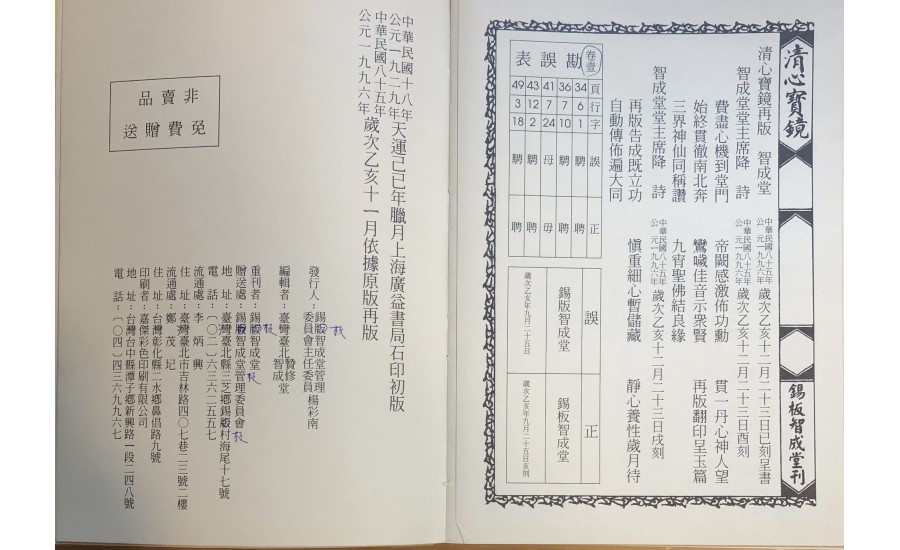 清心寶鏡
錫板智成堂刊
清心寶鏡再版　智成堂　中華民國八十五年　公元一九九六年　歲次乙亥十二月二十三日巳刻呈書
智成堂堂主席降　詩　中華民國八十五年　公元一九九六年　歲次乙亥十二月二十三日酉刻
費盡心機到堂門　帝闕感激佈功勳　貫一丹心神人望
始終貫徹南北奔　鸞嘁佳音示衆賢　再版翻印呈玉篇
三界神仙同稱讚　九宵聖佛結良緣
智成堂堂主席降　詩　中華民國八十五年　公元一九九六年　歲次乙亥十二月二十三日戌刻
再版告成既立功　愼重細心暫儲藏　靜心養性歲月待
自動傳佈遍大同
卷壹
勘誤表
頁 34 36 41 43 49
行 7 7 7 12 3
字 1 10 24 2 18
誤 騁 騁 母 騁 騁
正 聘 聘 毋 聘 聘
誤　正
錫版智成堂　錫板智成堂
歲次乙亥年九月二十五日　歲次乙亥年九月二十五日亥刻
中華民國十八年
公元一九二九年
天運己巳年臘月上海廣益書局石印初版
中華民國八十五年
公元一九九六年
歲次乙亥十一月依據原版再版
發行人：錫版智成堂管理委員會主任委員　楊彩南
編輯者：臺灣臺北智成堂贊修
重刊者：錫版智成堂
贈送處：錫版智成堂管理委員會
地　址：臺灣臺北縣三芝鄉錫版村海尾十七號
電　話：（〇二）六三六二五五七
流通處：李炳興
住　址：臺灣臺北市吉林路四〇七巷二三號二樓
流通處：鄭茂圮
住　址：台灣彰化縣二水鄉鼻倡路九號
印刷者：嘉傑彩色印刷有限公司
地　址：台灣台中縣潭子鄉新興路一段二四八號
電　話：（〇四）四三六九九六七
非賣品
免費贈送